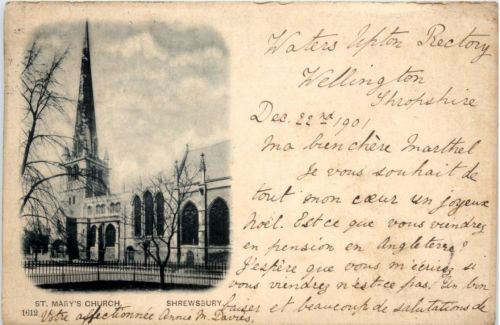 Waters Upton Rectory
Wellington
Shropshire
Dec. 22nd 1901
Ma bien chère Marthel
Je vous souhait de
tout mon cœur un joyeux
Noël. Est ce que vous viendrez
en pension en Angleterre?
J'espère que vous m'écrirez si
vous viendrez n'est-ce pas. Un bon
baiser et beaucoup de salutations de
ST. MARY'S CHURCH, SHREWSBURY.
1612
Votre affectionnée Annie M. Davies.